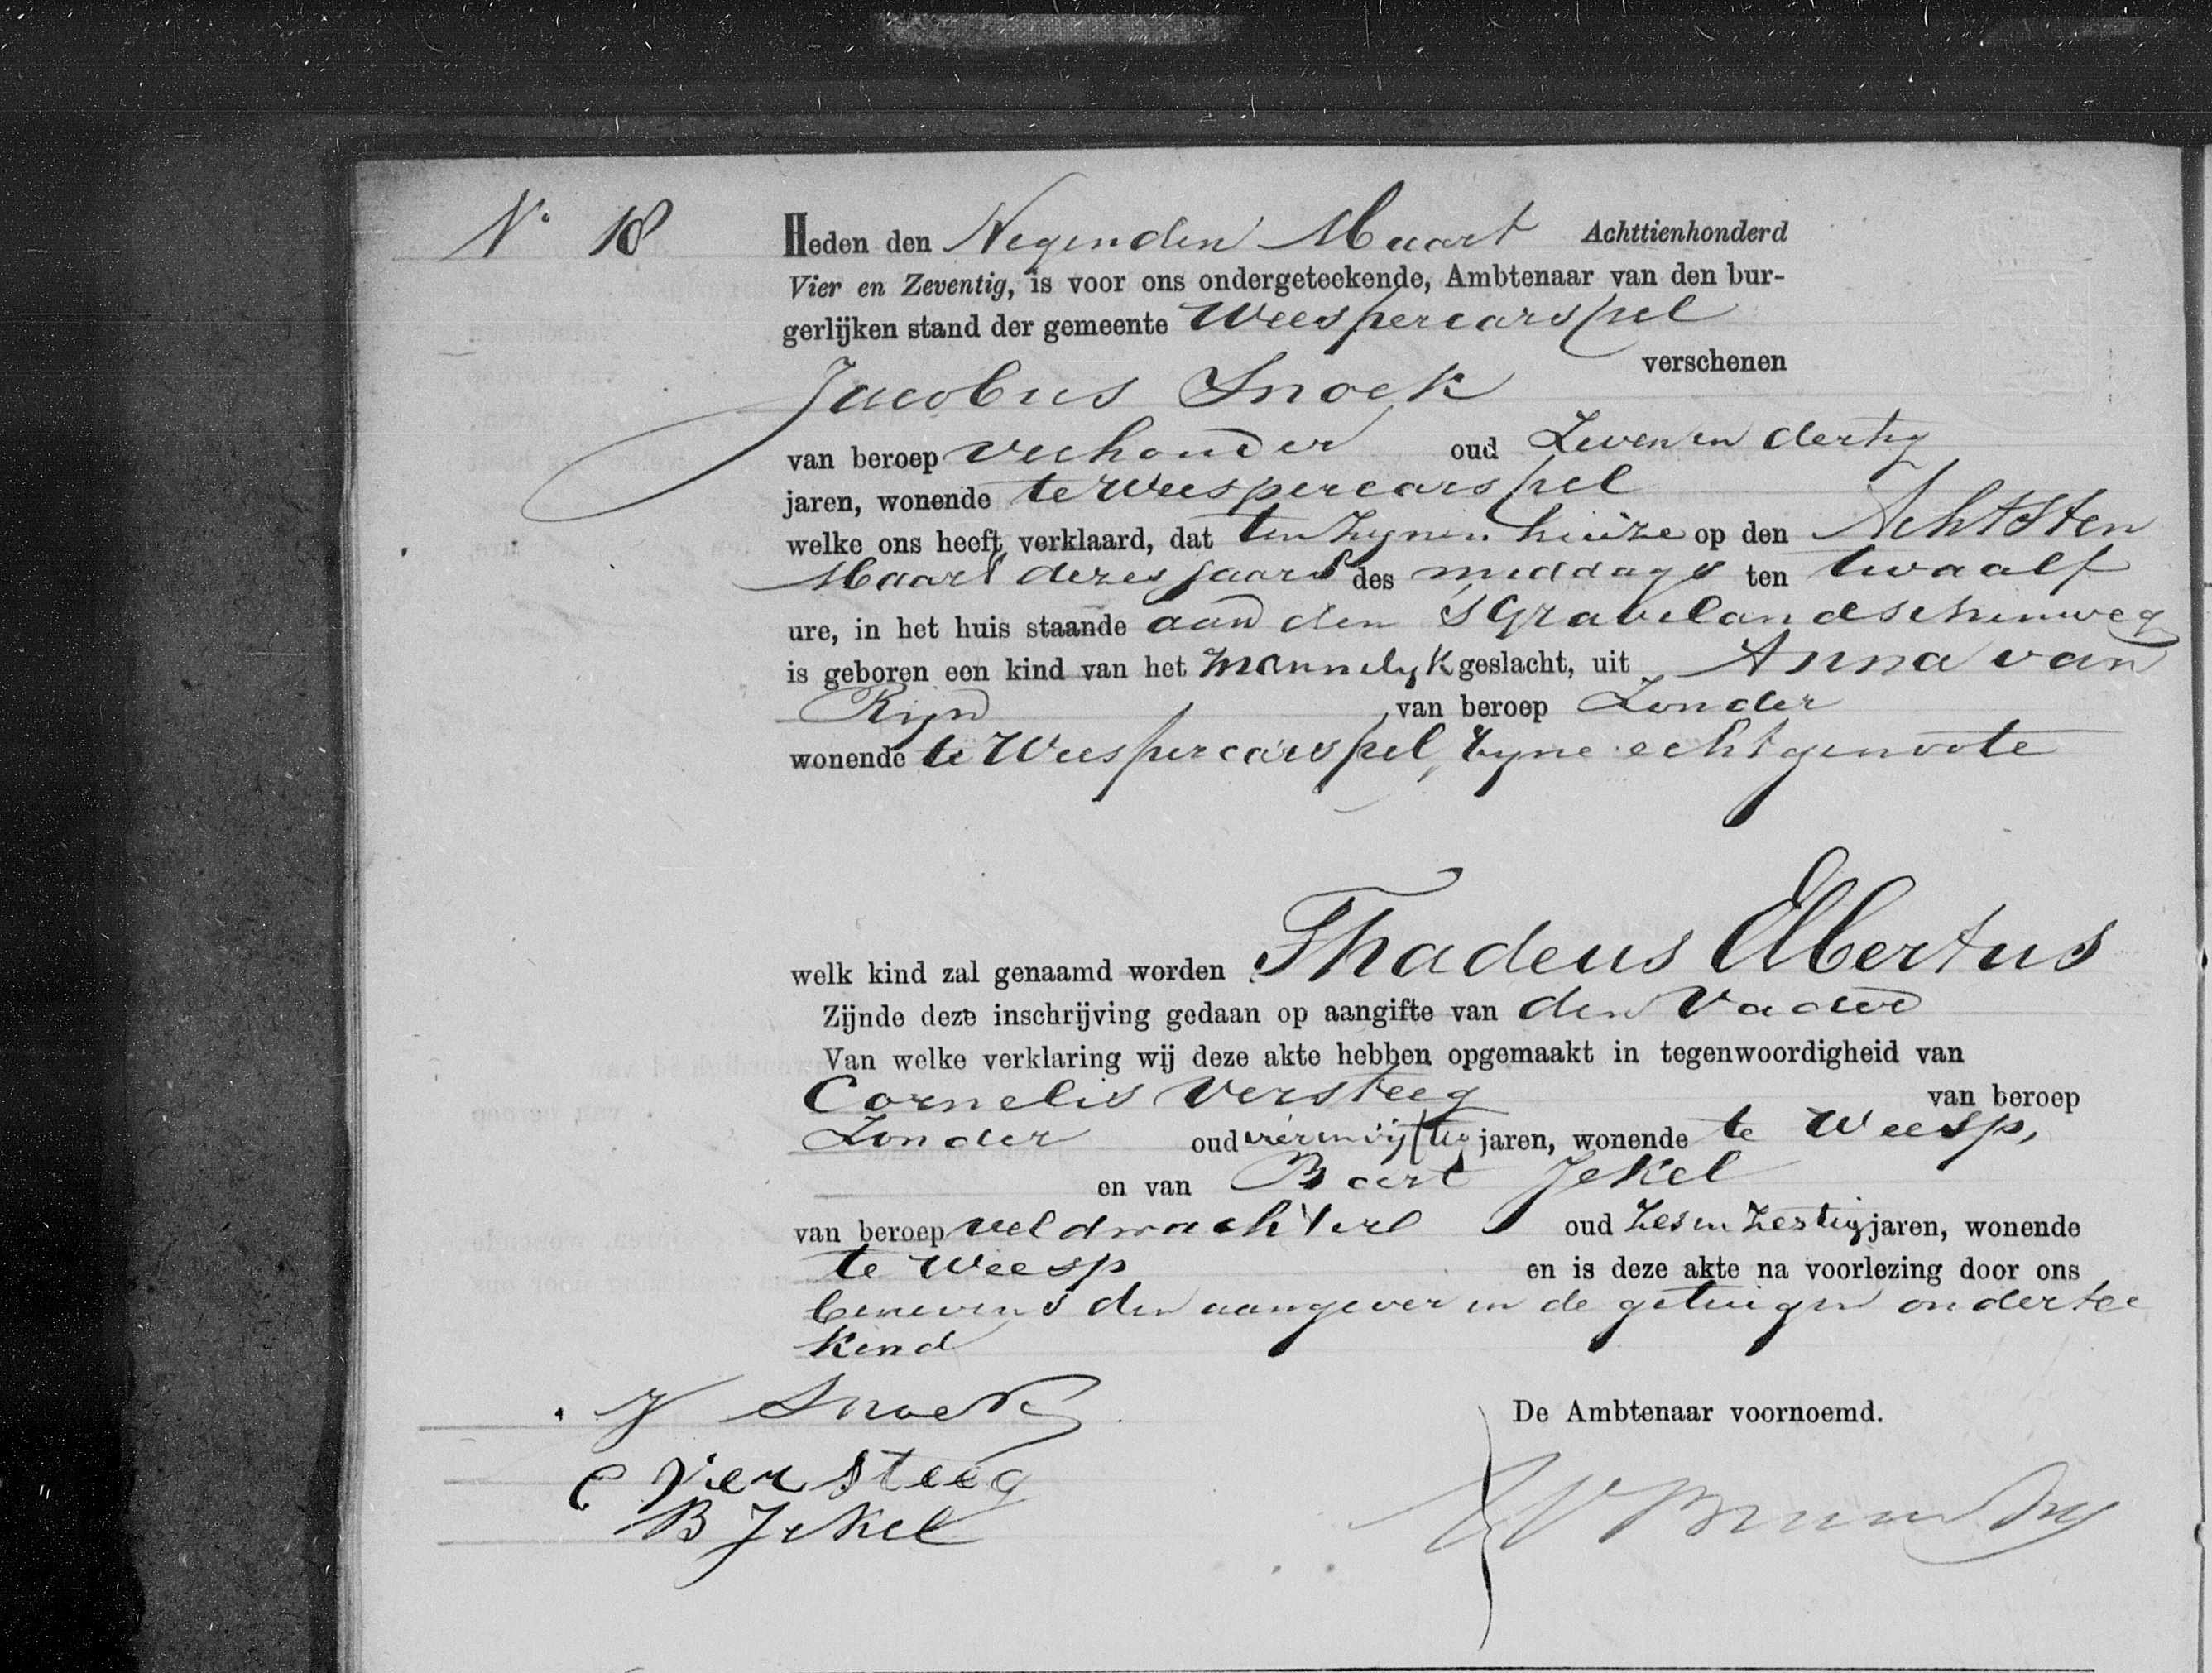 N° 18
Heden den Negenden Maart Achttienhonderd
Vier en Zeventig, is voor ons ondergeteekende, Ambtenaar van den bur-
gerlijken stand der gemeente Weespercarspel
verschenen
Jacobus Snoek
van beroep veehouder oud Zeven en dertig
jaren, wonende te Weespercarspel
welke ons heeft verklaard, dat ten zynen huize op den Achtsten
Maart dezes jaars des middags ten twaalf
ure, in het huis staande aan den SGravelandschenweg
is geboren een kind van het mannelyk geslacht, uit Anna van
Ryn van beroep Zonder
wonende te Weespercarspel, zyne echtgenoote
welk kind zal genaamd worden Thadeus Elbertus
Zijnde deze inschrijving gedaan op aangifte van den Vader
Van welke verklaring wij deze akte hebben opgemaakt in tegenwoordigheid van
Cornelis Versteeg van beroep
Zonder oud vier en vijftig jaren, wonende te Weesp,
en van Bart Jekel
van beroep veldwachter oud Zes en Zestig jaren, wonende
te Weesp en is deze akte na voorlezing door ons
benevens den aangever en de getuigen ondertee
kend
J Snoek
De Ambtenaar voornoemd.
C Versteeg
B Jekel